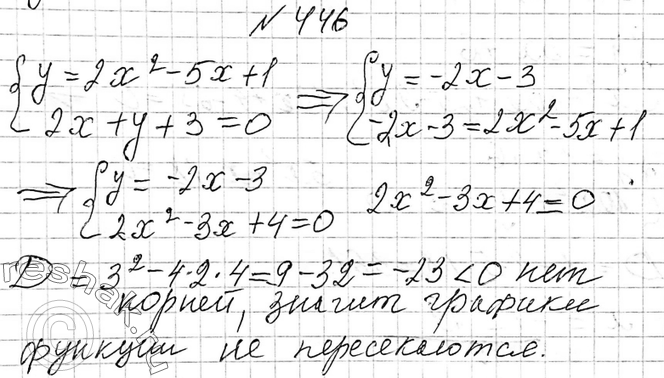 №446
{y = 2x² - 5x + 1 ⇒ {y = -2x - 3
{2x + y + 3 = 0 {-2x - 3 = 2x² - 5x + 1
⇒ {y = -2x - 3
{2x² - 3x + 4 = 0 2x² - 3x + 4 = 0
D = 3² - 4·2·4 = 9 - 32 = -23 < 0 нет
корней, значит графики
функции не пересекаются.
reshak.ru